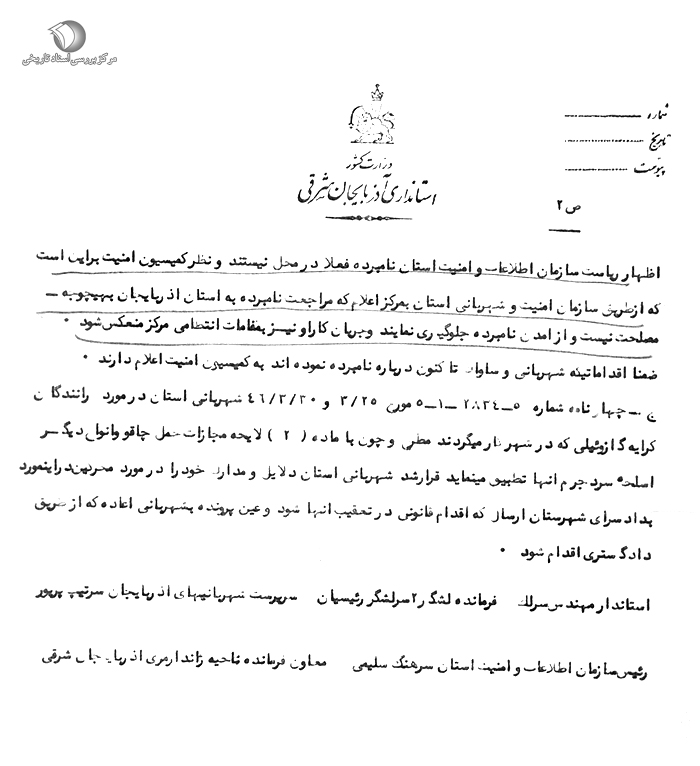 مرکز بررسی اسناد تاریخی
شماره
تاریخ
پیوست
وزارت کشور
استانداری آذربایجان شرقی
ص ۲
اظهار ریاست سازمان اطلاعات و امنیت استان نامبرده فعلا در محل نیستند و نظر کمیسیون امنیت براین است
که از طریق سازمان امنیت و شهربانی استان بمرکز اعلام که مراجعت نامبرده به استان اذربایجان بهیچوجه ـ
مصلحت نیست و از امدن نامبرده جلوگیری نمایند وجریان کار او نیز بمقامات انتظامی مرکز منعکس شود •
ضمنا اقداماتیکه شهربانی و ساواک تا کنون درباره نامبرده نموده اند به کمیسیون امنیت اعلام دارند •
چهار نامه شماره ۵ــ۲۸۳۴ــ۱ــ۵ مورخ ۳/۲۵ و ۴۶/۳/۳۰ شهربانی استان در مورد رانندگان
کرایه گازوئیلی که در شهر میگردند مطرح و چون با ماده ( ۲ ) لایحه مجازات حمل چاقو وانواع دیگر
اسلحه سرد جرم انها تطبیق مینماید قرار شد شهربانی استان دلایل و مدارک خود را در مورد مجرمین در اینمورد
بداد سرای شهرستان ارسال که اقدام قانونی در تعقیب انها شود وعین پرونده بشهربانی اعاده که از طریق
دادگستری اقدام شود •
استاندار مهندس سرلک فرمانده لشگر ۲ سرلشگر رئیسیان سرپرست شهربانیهای اذربایجان سرتیپ پرپور
رئیس سازمان اطلاعات و امنیت استان سرهنگ سلیمی معاون فرمانده ناحیه ژاندارمری اذربایجان شرقی